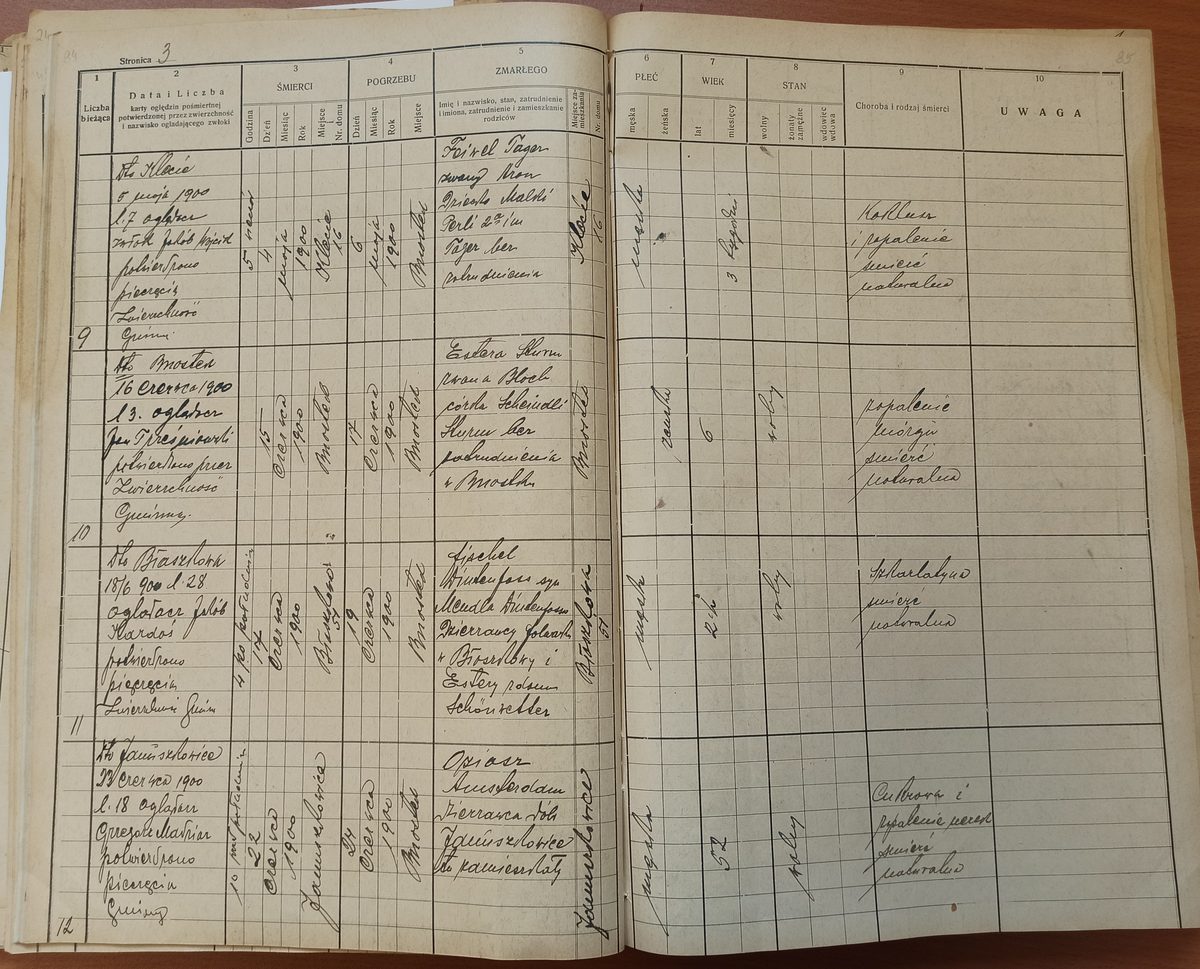 Stronica 3
1
2
3
4
5
6
7
8
9
10
Liczba bieżąca
Data i Liczba
karty oględzin pośmiertnej
potwierdzonej przez zwierzchność
i nazwisko oglądającego zwłoki
ŚMIERCI
Godzina
Dzień
Miesiąc
Rok
Miejsce
Nr. domu
POGRZEBU
Dzień
Miesiąc
Rok
Miejsce
ZMARŁEGO
Imię i nazwisko, stan, zatrudnienie
i imiona, zatrudnienie i zamieszkanie
rodziców
Miejsce zamieszkania
Nr. domu
PŁEĆ
męska
żeńska
WIEK
lat
miesięcy
STAN
wolny
żonaty
zamężne
wdowiec
wdowa
Choroba i rodzaj śmierci
UWAGA
85
9
Dto Klecie
5 maja 1900
l. 7 oglądacz
zwłok Jakób Wójcik
potwierdzono
pieczęcią
Zwierzchność
Gminy
4
maja
1900
Klecie
16
6
maja
1900
Brzostek
Feiwel Tager
zwany Kron
Dziecko Malki
Perli 2a im
Tager bez
zatrudnienia
Klecie
16
męska
3 tygodni
Koklusz
i zapalenie
śmierć
naturalna
10
Dto Brzostek
16 Czerwca 1900
l 3. oglądacz
potwierdzono przez
Zwierzchność
Gminną
15
Czerwca
1900
Brzostek
17
Czerwca
1900
Brzostek
Estera Sturm
zwana Bloch
córka Scheindli
Sturm bez
zatrudnienia
w Brzostku
Brzostek
żeńska
6
wolny
zapalenie
mózgu
śmierć
naturalna
11
Dto Błaszkowa
18/6 900 l. 28
oglądacz Jakób
Kardaś
potwierdzono
pieczęcią
4 po południu
17
Czerwca
1900
51
19
Czerwca
1900
Brzostek
Dintenfass syn
Mendla Dintenfassa
Dzierżawcy folwarku
w Błaszkowy i
Estery
Schönwetter
Błaszkowa
51
męska
2½
wolny
Szkarlatyna
śmierć
naturalna
12
Dto Januszkowice
23 Czerwca 1900
l. 18 oglądacz
potwierdzono
pieczęcią
Gminy
22
Czerwca
1900
Januszkowice
24
Czerwca
1900
Brzostek
Amsterdam
Dzierżawca dób
Januszkowice
tu zamieszkały
Januszkowice
męska
52
wolny
Cukrowa i
zapalenie nerek
śmierć
naturalna